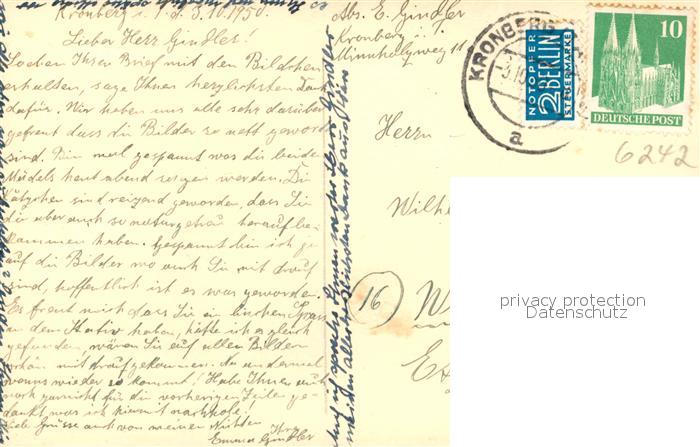 Kronberg i. T. d. 3.10.1950.
Lieber Herr Gindler!
Soeben Ihren Brief mit den Bildchen
erhalten, sage Ihnen herzlichsten Dank
dafür. Wir haben uns alle sehr darüber
gefreut dass die Bilder so nett geworden
sind. Bin mal gespannt was die beiden
Mädels heut abend sagen werden. Die
Kätzchen sind reizend geworden, dass Sie
die aber auch so naturgetreu herausbe-
kommen haben. Gespannt bin ich ja
auf die Bilder wo auch Sie mit drauf
sind, hoffentlich ist es was geworden.
Es freut mich dass Sie ein bischen Spass
an dem Stativ haben, hätte ich es gleich
gefunden, wären Sie auf allen Bildern
schön mit draufgekommen. Na andermal
wanns wieder so kommt! Habe Ihnen auch
noch garnicht für die vorherigen Zeilen ge-
dankt was ich hiermit nachhole!
Liebe Grüsse auch von meinen Nichten
Ihre
Emma Gindler
Abs. E. Gindler
Kronberg i.
KRONBERG
a
NOTOPFER
2 BERLIN
STEUERMARKE
10
DEUTSCHE POST
6242
Herrn
Wilh
16
privacy protection
Datenschutz